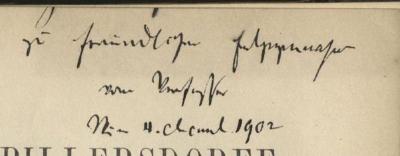 zu freundlicher Entgegennahme
vom Verfasser
Wien 4. April 1902
PILLERSDORFF